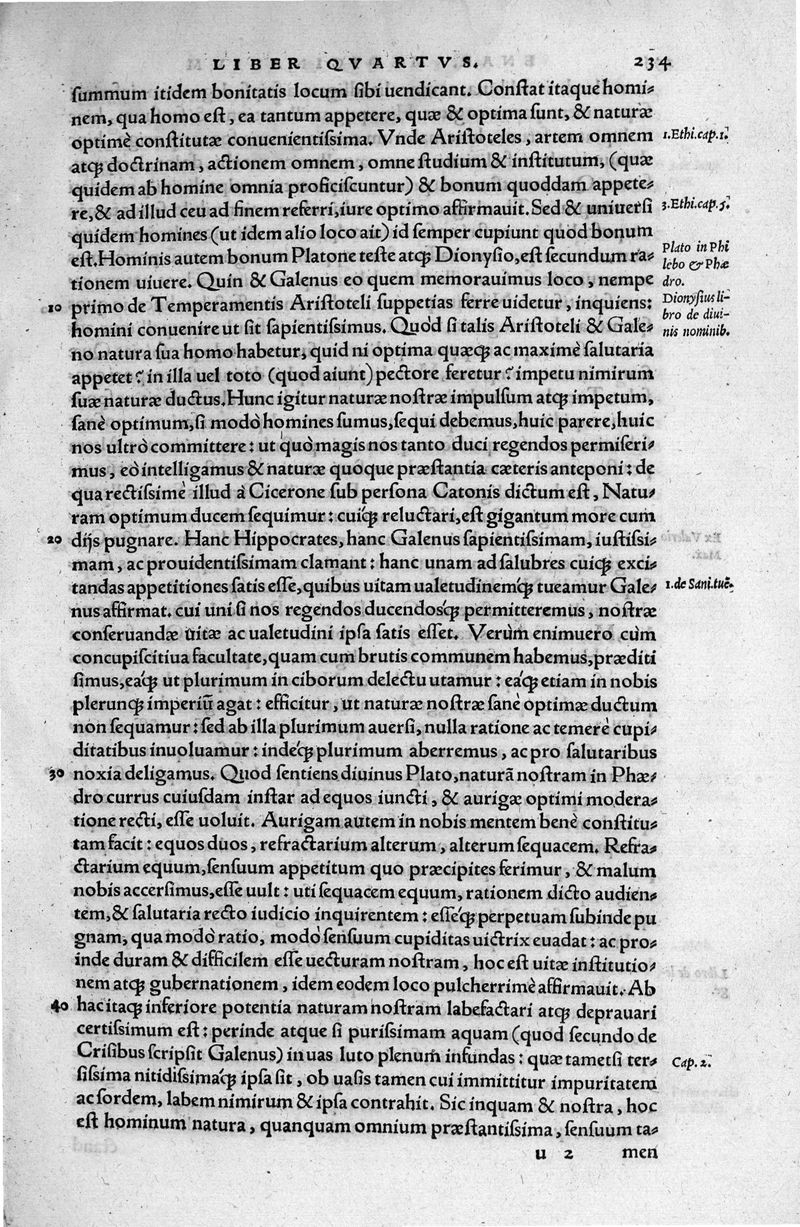 LIBER QVARTVS. 234
ſummum itidem bonitatis locum ſibi uendicant. Conſtat itaque homi⸗
nem, qua homo eſt, ea tantum appetere, quæ & optima ſunt, & naturæ
optimè conſtitutæ conuenientiſsima. Vnde Ariſtoteles, artem omnem
1.Ethi.cap.1.
atq́; doctrinam, actionem omnem, omne ſtudium & inſtitutum, (quæ
quidem ab homine omnia proficiſcuntur) & bonum quoddam appete⸗
re, & ad illud ceu ad finem referri, iure optimo affirmauit. Sed & uniuerſi
3.Ethi.cap.5.
quidem homines (ut idem alio loco ait) id ſemper cupiunt quod bonum
eſt. Hominis autem bonum Platone teſte atq́; Dionyſio, eſt ſecundum ra⸗
Plato in Phi
lebo & Phæ
dro.
tionem uiuere. Quin & Galenus eo quem memorauimus loco, nempe
10 primo de Temperamentis Ariſtoteli ſuppetias ferre uidetur, inquiens:
Dionyſius li⸗
bro de diui⸗
nis nominib.
homini conuenire ut ſit ſapientiſsimus. Quòd ſi talis Ariſtoteli & Gale⸗
no natura ſua homo habetur, quid ni optima quæq́; ac maximè ſalutaria
appetet? in illa uel toto (quod aiunt) pectore feretur? impetu nimirum
ſuæ naturæ ductus. Hunc igitur naturæ noſtræ impulſum atq́; impetum,
ſanè optimum, ſi modò homines ſumus, ſequi debemus, huic parere, huic
nos ultrò committere: ut quò magis nos tanto duci regendos permiſeri⸗
mus, eò intelligamus & naturæ quoque præſtantia cæteris anteponi: de
qua rectiſsimè illud à Cicerone ſub perſona Catonis dictum eſt, Natu⸗
ram optimum ducem ſequimur: cuiq́; reluctari, eſt gigantum more cum
20 dijs pugnare. Hanc Hippocrates, hanc Galenus ſapientiſsimam, iuſtiſsi⸗
mam, ac prouidentiſsimam clamant: hanc unam ad ſalubres cuiq́; exci⸗
tandas appetitiones ſatis eſſe, quibus uitam ualetudinemq́; tueamur Gale⸗
1.de Sani.tuē.
nus affirmat. cui uni ſi nos regendos ducendosq́; permitteremus, noſtræ
conſeruandæ uitæ ac ualetudini ipſa ſatis eſſet. Verùm enimuero cùm
concupiſcitiua facultate, quam cum brutis communem habemus, præditi
ſimus, eaq́; ut plurimum in ciborum delectu utamur: eaq́; etiam in nobis
plerunq́; imperiū agat: efficitur, ut naturæ noſtræ ſanè optimæ ductum
non ſequamur: ſed ab illa plurimum auerſi, nulla ratione ac temerè cupi⸗
ditatibus inuoluamur: indeq́; plurimum aberremus, ac pro ſalutaribus
30 noxia deligamus. Quod ſentiens diuinus Plato, naturā noſtram in Phæ⸗
dro currus cuiuſdam inſtar ad equos iuncti, & aurigæ optimi modera⸗
tione recti, eſſe uoluit. Aurigam autem in nobis mentem benè conſtitu⸗
tam facit: equos duos, refractarium alterum, alterum ſequacem. Refra⸗
ctarium equum, ſenſuum appetitum quo præcipites ferimur, & malum
nobis accerſimus, eſſe uult: uti ſequacem equum, rationem dicto audien⸗
tem, & ſalutaria recto iudicio inquirentem: eſſeq́; perpetuam ſubinde pu
gnam, qua modò ratio, modò ſenſuum cupiditas uictrix euadat: ac pro⸗
inde duram & difficilem eſſe uecturam noſtram, hoc eſt uitæ inſtitutio⸗
nem atq́; gubernationem, idem eodem loco pulcherrimè affirmauit. Ab
40 hac itaq́; inferiore potentia naturam noſtram labefactari atq́; deprauari
certiſsimum eſt: perinde atque ſi puriſsimam aquam (quod ſecundo de
Criſibus ſcripſit Galenus) in uas luto plenum infundas: quæ tametſi ter⸗
Cap.2.
ſiſsima nitidiſsimaq́; ipſa ſit, ob uaſis tamen cui immittitur impuritatem
ac ſordem, labem nimirum & ipſa contrahit. Sic inquam & noſtra, hoc
eſt hominum natura, quanquam omnium præſtantiſsima, ſenſuum ta⸗
u 2 men